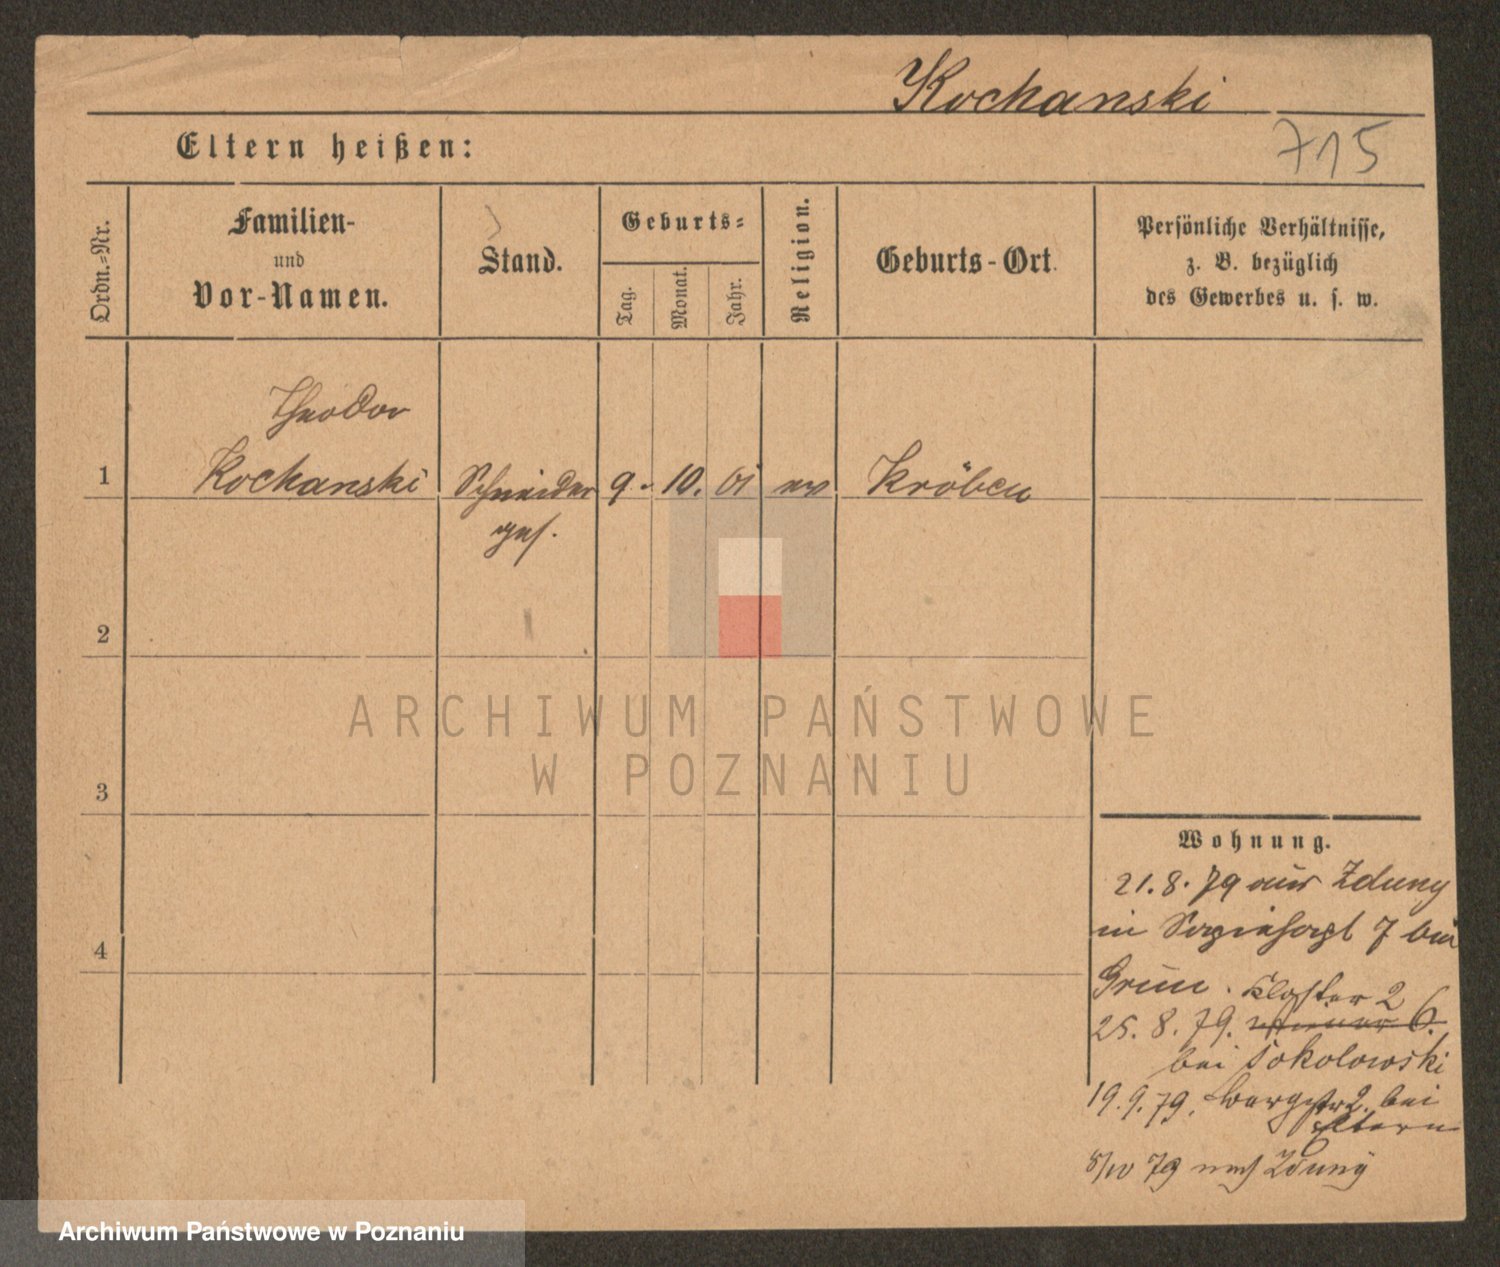 Kochanski
715
Eltern heißen:
Ordn.-Nr.
Familien-
und
Vor-Namen.
Stand.
Geburts-
Tag.
Monat.
Jahr.
Religion.
Geburts-Ort.
Persönliche Verhältnisse,
z. B. bezüglich
des Gewerbes u. s. w.
Theodor
1 Kochanski Schneider 9. 10. 61 ev Kröben
ges.
2
3
4
Wohnung.
21. 8. 79 aus Zduny
in 7 bei
Grün. Kloster 2
25. 8. 79. 6.
bei Sokolowski
19. 9. 79. 2. bei
Eltern
79 nach Zduny
ARCHIWUM PAŃSTWOWE
W POZNANIU
Archiwum Państwowe w Poznaniu